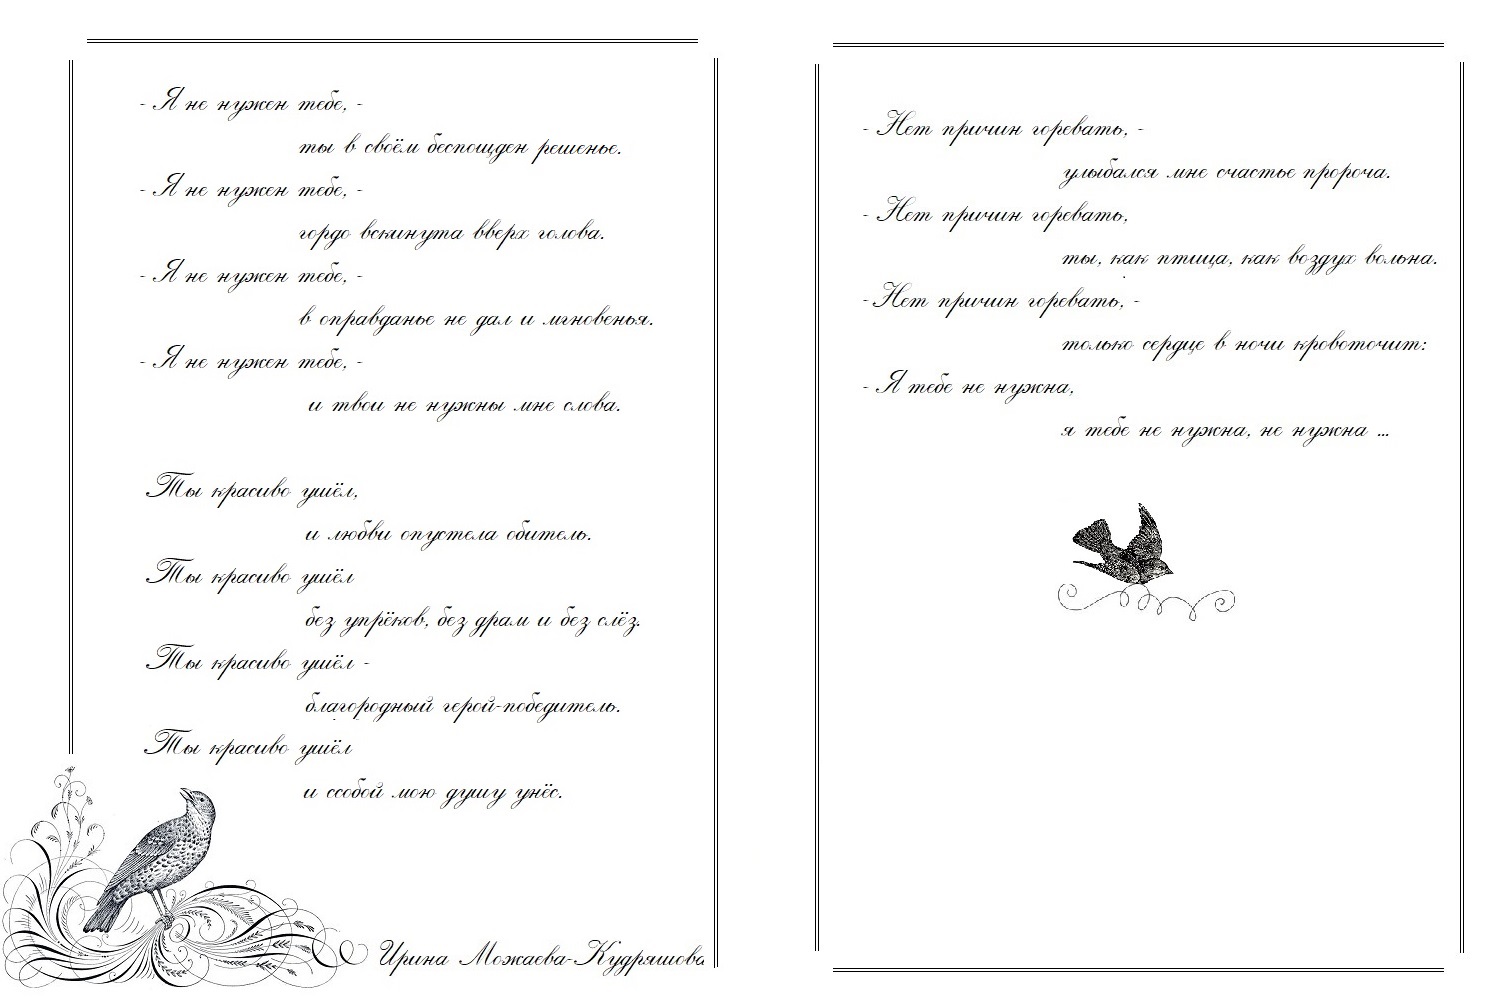 - Я не нужен тебе, -
ты в своём беспощден решенье.
- Я не нужен тебе, -
гордо вскинута вверх голова.
- Я не нужен тебе, -
в оправданье не дал и мгновенья.
- Я не нужен тебе, -
и твои не нужны мне слова.
Ты красиво ушёл,
и любви опустела обитель.
Ты красиво ушёл
без упрёков, без драм и без слёз.
Ты красиво ушёл -
благородный герой-победитель.
Ты красиво ушёл
и ссобой мою душу унёс.
Ирина Можаева-Кудряшова
- Нет причин горевать, -
улыбался мне счастье пророча.
- Нет причин горевать,
ты, как птица, как воздух вольна.
- Нет причин горевать, -
только сердце в ночи кровоточит:
- Я тебе не нужна,
я тебе не нужна, не нужна ...